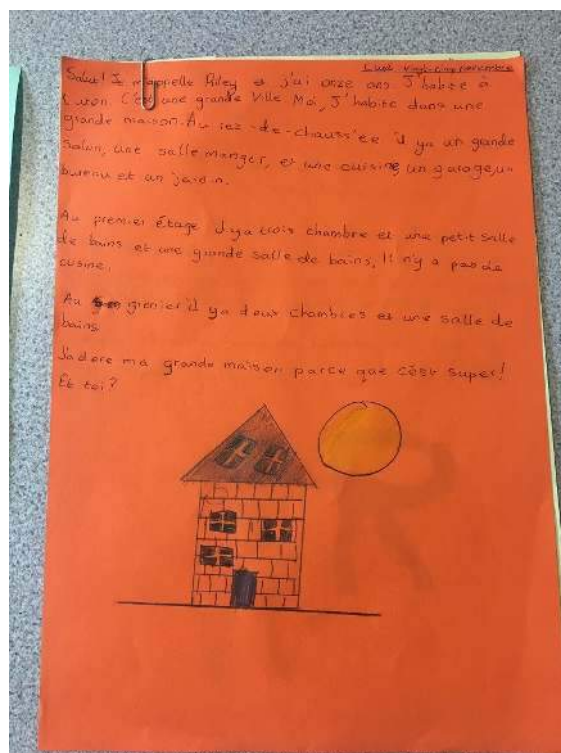 Lundi vingt-cinq novembre
Salut! Je m'appelle Riley et j'ai onze ans J'habite à
C'est une grande Ville. Moi, J'habite dans une
grande maison. Au rez-de-chaussée il ya un grande
Salon, une salle manger, et une cuisine, un garage, un
bureau et un jardin.
Au premier étage il ya trois chambre et une petit salle
de bains et une grande salle de bains, Il n'y a pas de
cusine.
Au grenier il ya deux chambres et une salle de
bains
J'adore ma grande maison parce que c'est super!
Et toi?